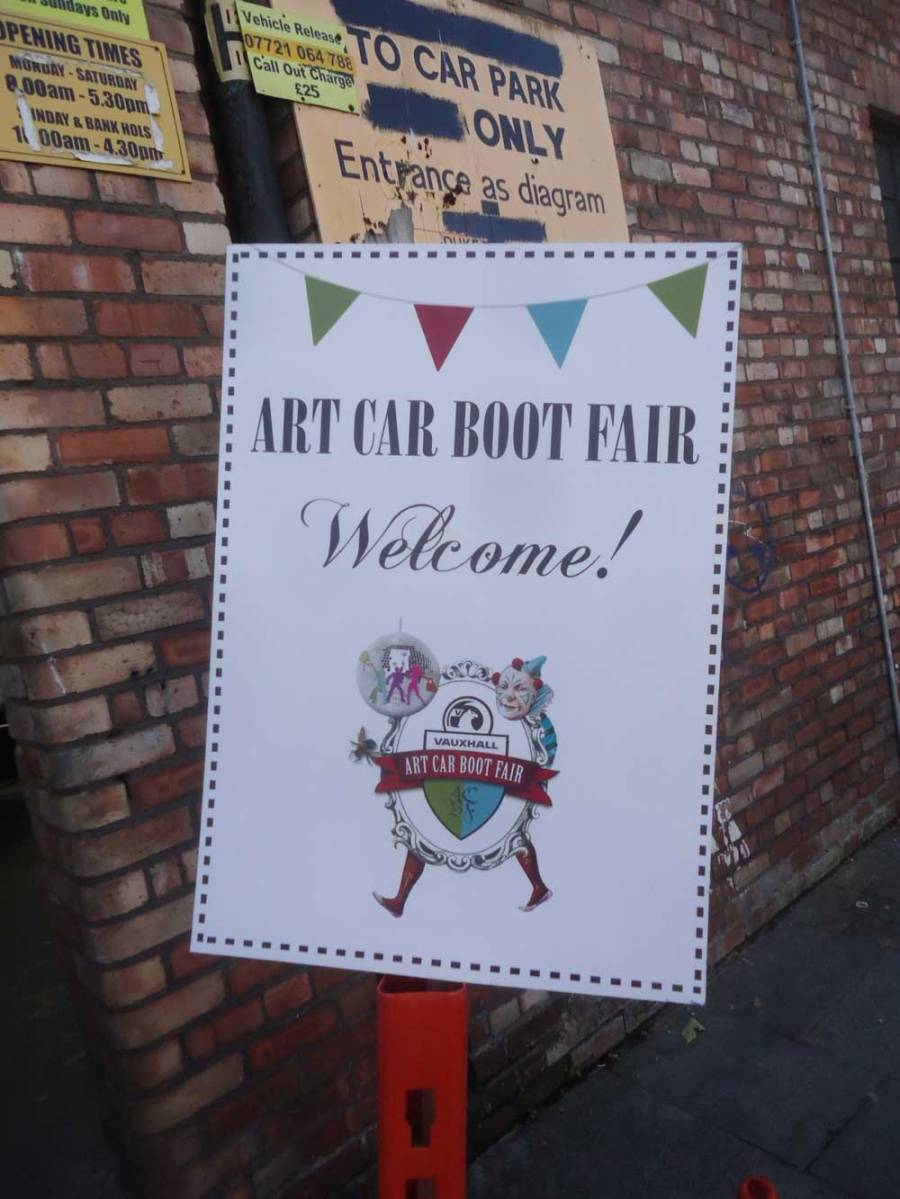 on Sundays Only
OPENING TIMES
MONDAY - SATURDAY
8.00am - 5.30pm
& BANK HOLS
00am - 4.30pm
Vehicle Release
07721 064 788
Call Out Charge
£25
TO CAR PARK
ONLY
Entrance as diagram
ART CAR BOOT FAIR
Welcome!
VAUXHALL
ART CAR BOOT FAIR